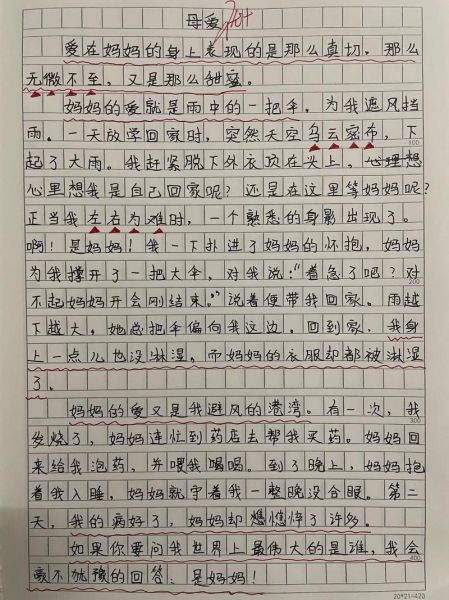 母爱
爱在妈妈的身上表现的是那么真切，那么
无微不至，又是那么甜蜜。
妈妈的爱就是雨中的一把伞，为我遮风挡
雨。一天放学回家时，突然天空乌云密布，下
100
起了大雨。我赶紧脱下外衣顶在头上，心理想
心里想我是自己回家呢？还是在这里等妈妈呢？
正当我左右为难时，一个熟悉的身影出现了。
啊！是妈妈！我一下扑进了妈妈的怀抱，妈妈
为我撑开了一把大伞，对我说：“着急了吧？对
200
不起妈妈开会刚结束。”说着便带我回家。雨越
下越大，她总把伞偏向我这边，回到家，我身
上一点儿也没淋湿，而妈妈的衣服却都被淋湿
了。
妈妈的爱又是我避风的港湾。有一次，我
300
发烧了，妈妈连忙到药店去帮我买药。妈妈回
来给我泡药，并喂我喝喝。到了晚上，妈妈抱
着我入睡，妈妈就守着我一整晚没合眼。第二
天，我的病好了，妈妈却憔悴了许多。
如果你要问我世界上最伟大的是谁，我会
400
毫不犹豫的回答：是妈妈！
20*21=420